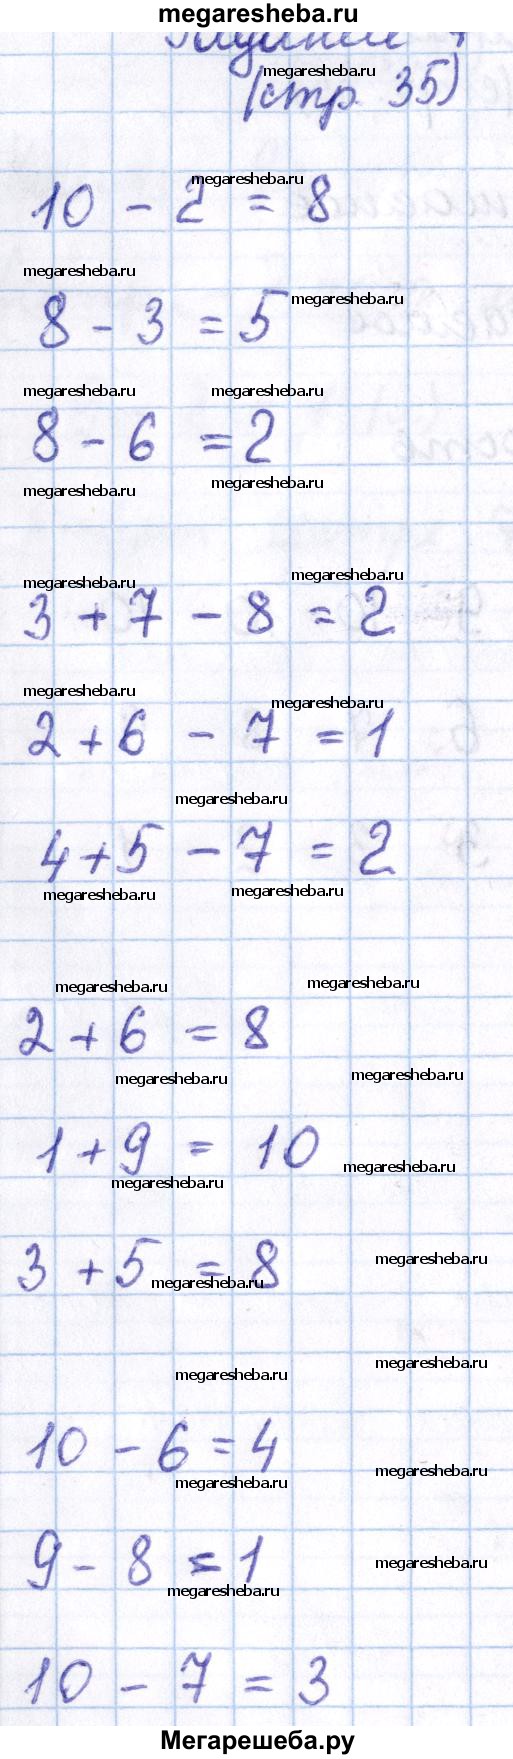 megaresheba.ru
megaresheba.ru
(стр. 35)
megaresheba.ru
10 - 2 = 8
megaresheba.ru
megaresheba.ru
8 - 3 = 5
megaresheba.ru megaresheba.ru
8 - 6 = 2
megaresheba.ru megaresheba.ru
megaresheba.ru megaresheba.ru
3 + 7 - 8 = 2
megaresheba.ru megaresheba.ru
2 + 6 - 7 = 1
megaresheba.ru
4 + 5 - 7 = 2
megaresheba.ru megaresheba.ru
megaresheba.ru megaresheba.ru
2 + 6 = 8
megaresheba.ru megaresheba.ru
1 + 9 = 10
megaresheba.ru megaresheba.ru
3 + 5 = 8
megaresheba.ru
megaresheba.ru
megaresheba.ru megaresheba.ru
10 - 6 = 4
megaresheba.ru megaresheba.ru
9 - 8 = 1
megaresheba.ru megaresheba.ru
10 - 7 = 3
Мегарешеба.ру